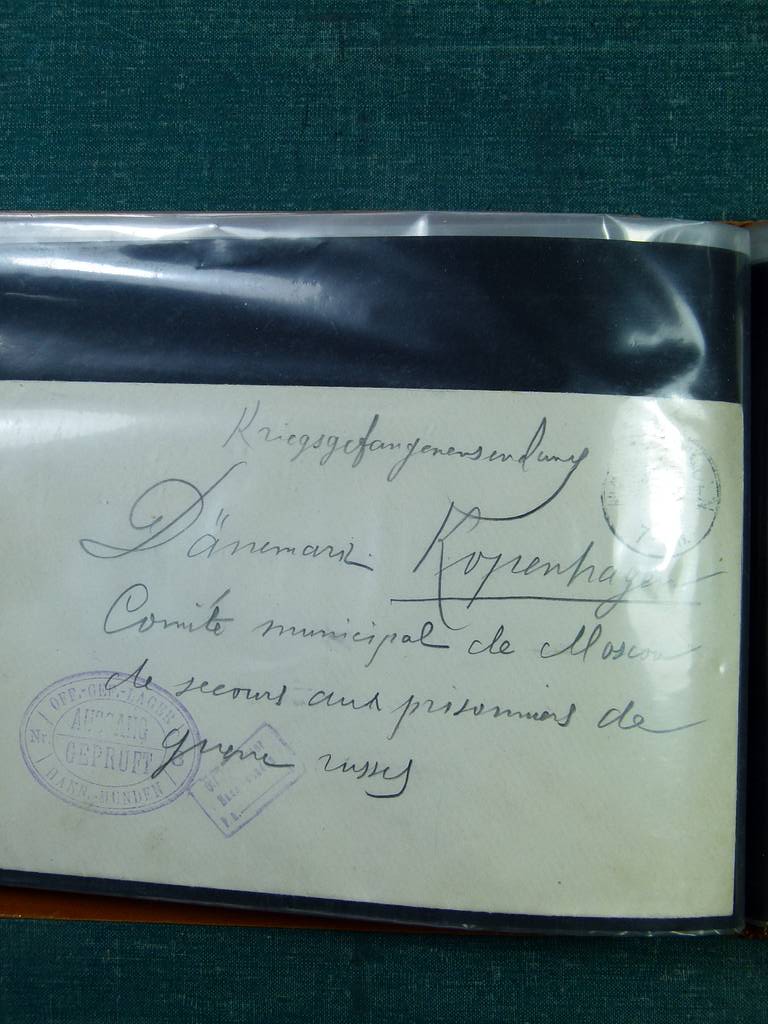 Kriegsgefangenensendung
Dänemark Kopenhagen
Comité municipal de Moscou
de secours aux prisonniers de
guerre russes
OFF.-GEF.-LAGER
AUSGANG
Nr.
GEPRÜFT
HANN.-MÜNDEN